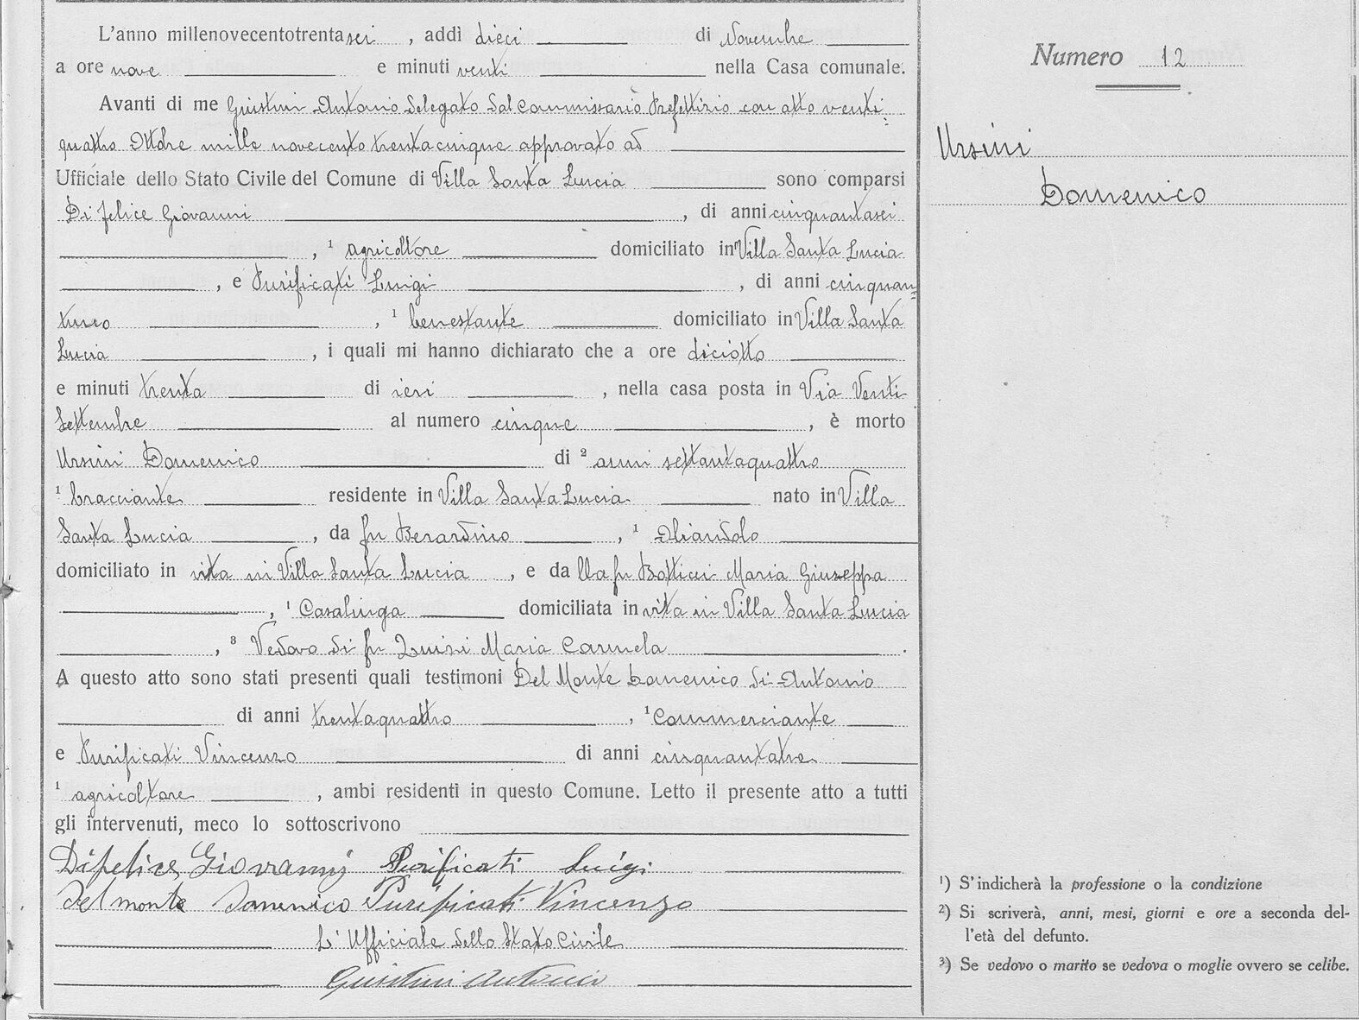 L'anno millenovecentotrentasei , addì dieci di Novembre
a ore nove e minuti venti nella Casa comunale.
Avanti di me Giustini Antonio Delegato dal Commissario Prefettizio con atto venti-
quattro Ottobre mille novecento trentacinque approvato ad
Ufficiale dello Stato Civile del Comune di Villa Santa Lucia sono comparsi
Di felice Giovanni , di anni cinquantasei
, ¹ agricoltore domiciliato in Villa Santa Lucia
, e Purificati Luigi , di anni cinquan=
, ¹ benestante domiciliato in Villa Santa
Lucia , i quali mi hanno dichiarato che a ore diciotto
e minuti trenta di ieri , nella casa posta in Via Venti
Settembre al numero cinque , è morto
Ursini Domenico di ² anni settantaquattro
¹ bracciante residente in Villa Santa Lucia nato in Villa
Santa Lucia , da fu Berardino , ¹
domiciliato in vita in Villa Santa Lucia , e da lla fu Maria Giuseppa
, ¹ Casalinga domiciliata in vita in Villa Santa Lucia
, ³ Vedovo di fu Maria Carmela .
A questo atto sono stati presenti quali testimoni Del Monte Domenico di Antonio
di anni trentaquattro , ¹ Commerciante
e Purificati Vincenzo di anni cinquantatre
¹ agricoltore , ambi residenti in questo Comune. Letto il presente atto a tutti
gli intervenuti, meco lo sottoscrivono
Difelice Giovanni Purificati Luigi
Delmonte Domenico Purificati Vincenzo
L'Ufficiale dello Stato Civile
Giustini Antonio
Numero 12
Ursini
Domenico
¹) S'indicherà la professione o la condizione
²) Si scriverà, anni, mesi, giorni e ore a seconda del-
l'età del defunto.
³) Se vedovo o marito se vedova o moglie ovvero se celibe.